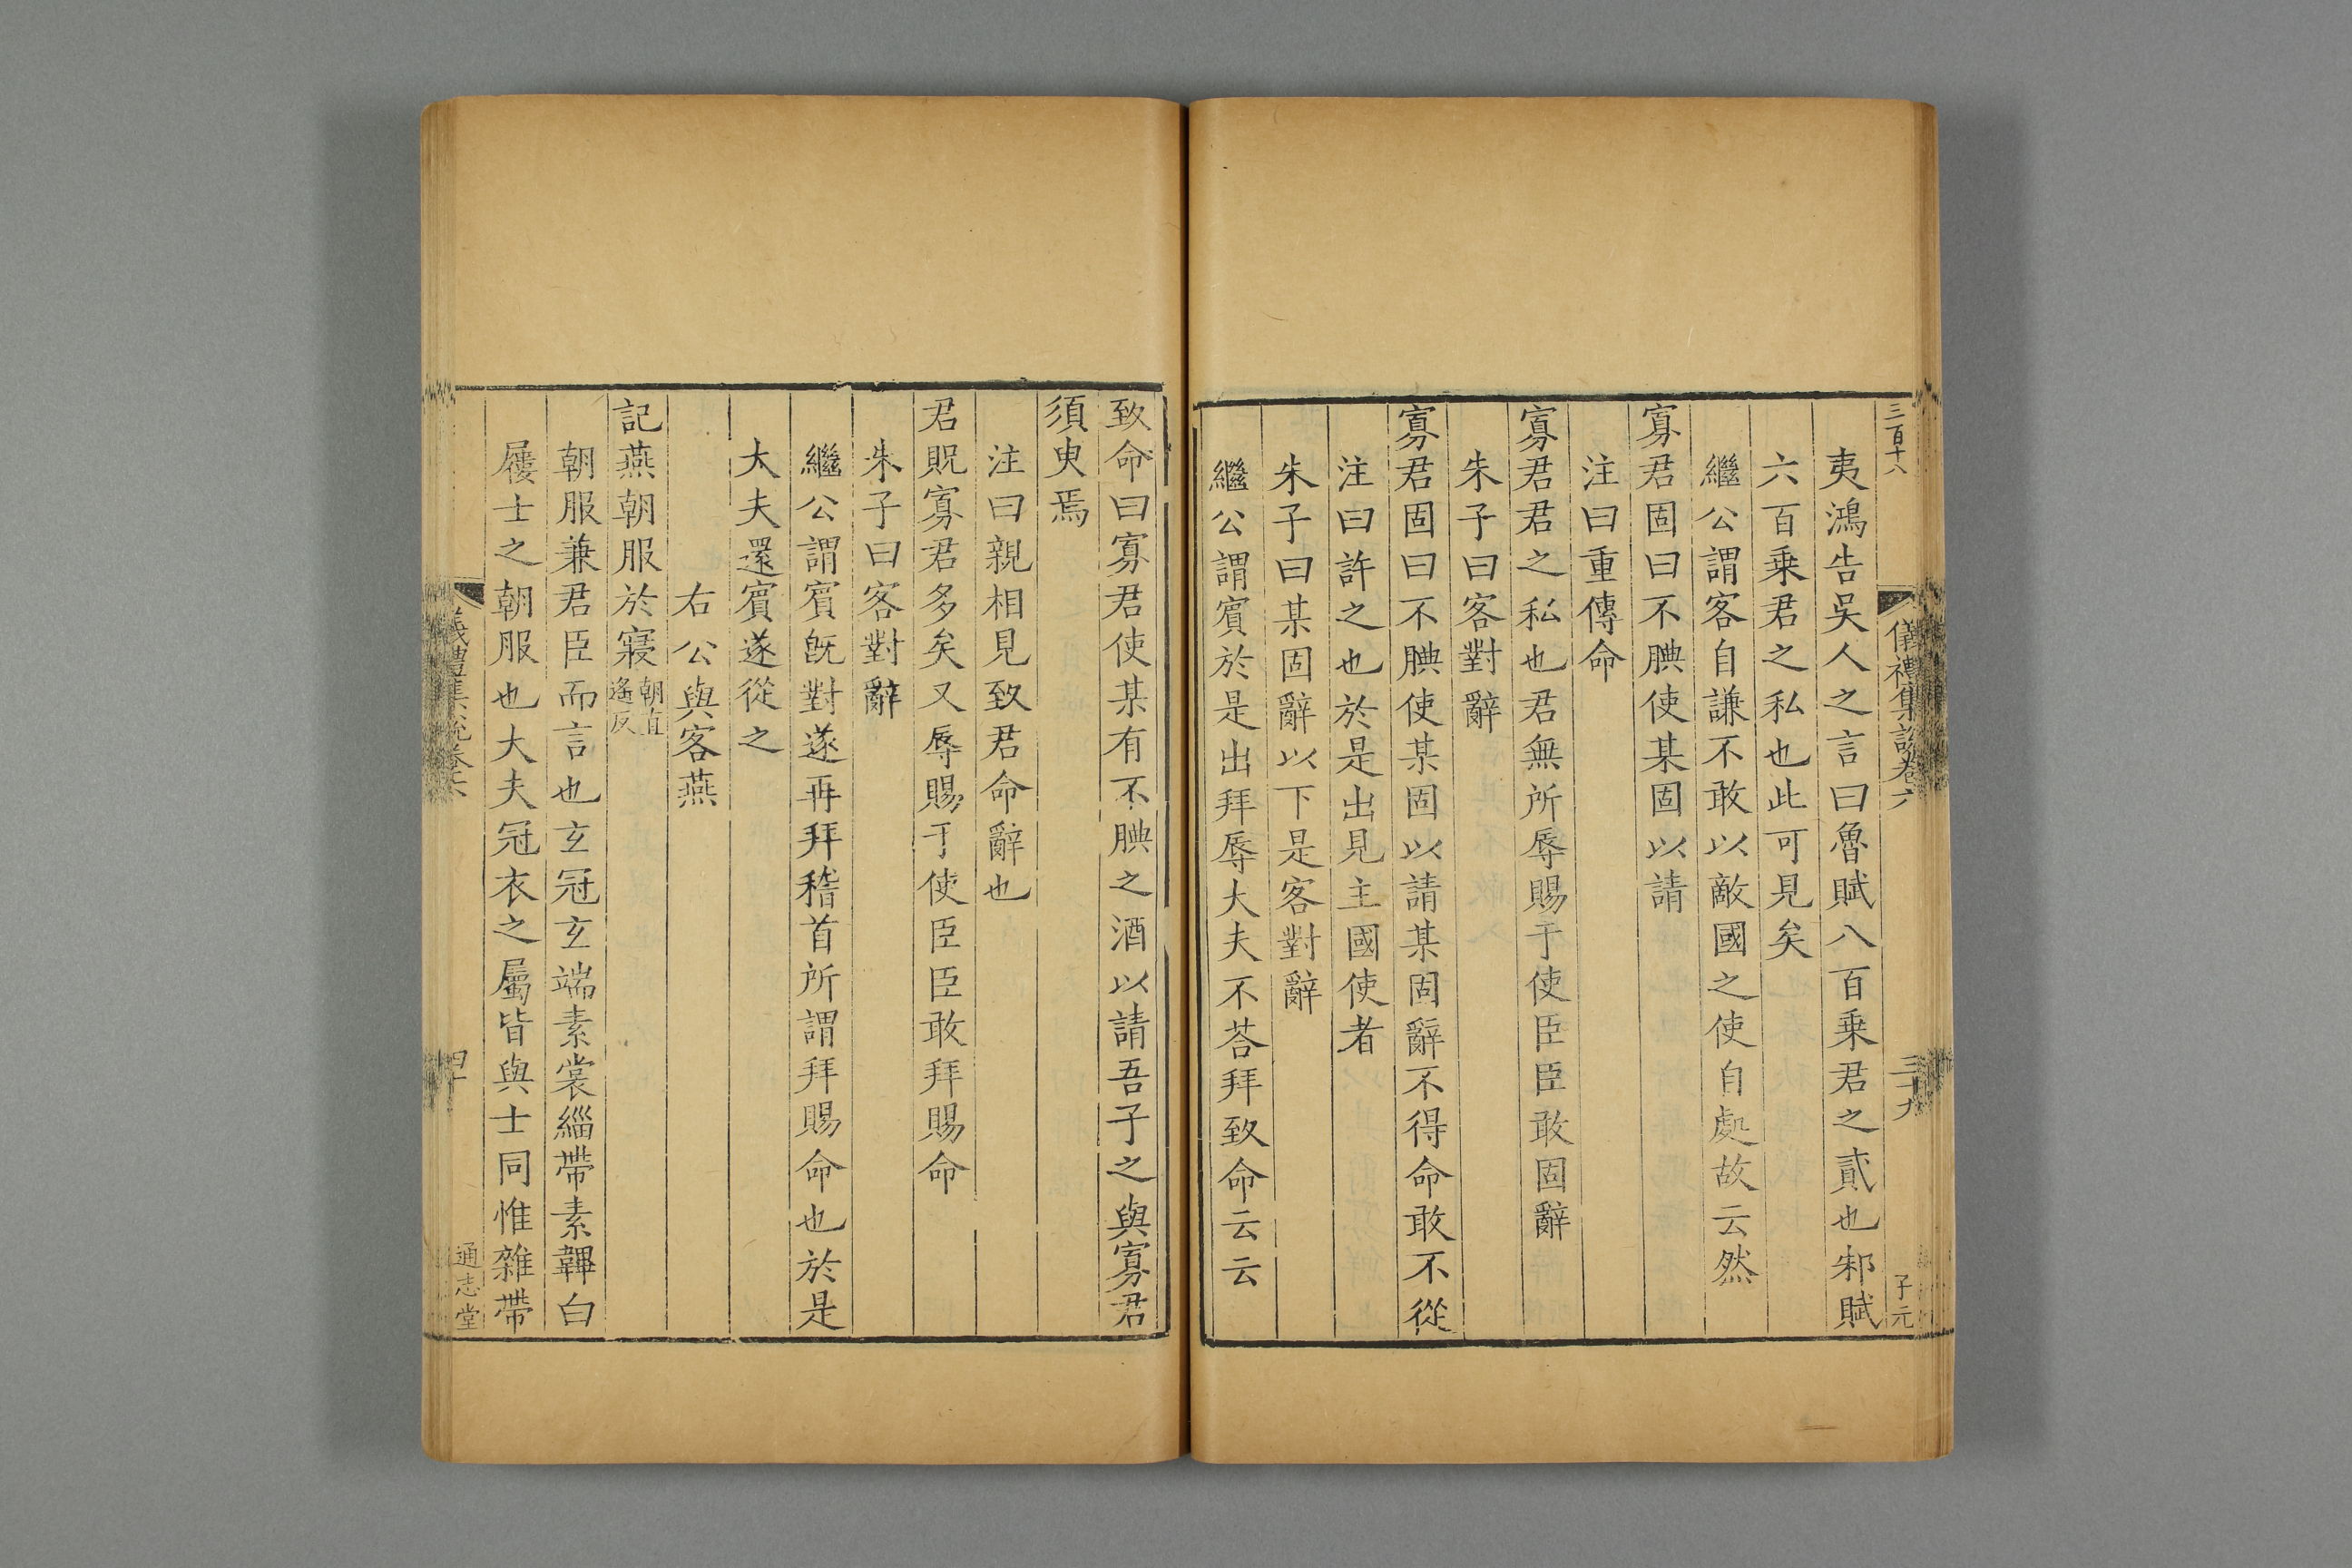 三百十八
儀禮集說卷六
三十九
子元
夷鴻告吳人之言曰魯賦八百乗君之貳也邾賦
六百乗君之私也此可見矣
繼公謂客自謙不敢以敵國之使自處故云然
寡君固曰不腆使某固以請
注曰重傳命
寡君君之私也君無所辱賜于使臣臣敢固辭
朱子曰客對辭
寡君固曰不腆使某固以請某固辭不得命敢不從
注曰許之也於是出見主國使者
朱子曰某固辭以下是客對辭
繼公謂賔於是出拜辱大夫不荅拜致命云云
致命曰寡君使某有不腆之酒以請吾子之與寡君
須臾焉
注曰親相見致君命辭也
君貺寡君多矣又辱賜于使臣臣敢拜賜命
朱子曰客對辭
繼公謂賔旣對遂再拜稽首所謂拜賜命也於是
大夫還賔遂從之
右公與客燕
記燕朝服於寢朝直遙反
朝服兼君臣而言也玄冠玄端素裳緇帶素韠白
屨士之朝服也大夫冠衣之屬皆與士同惟雜帶
儀禮集說卷六
四十
通志堂